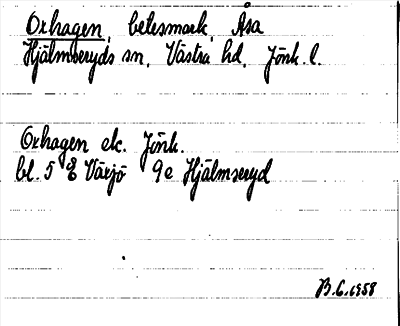 Oxhagen, betesmark, Åsa
Hjälmseryds sn, Västra hd, Jönk. l.
Oxhagen ek. Jönk.
bl. 5 E Växjö 9e Hjälmseryd
B.C. 1958